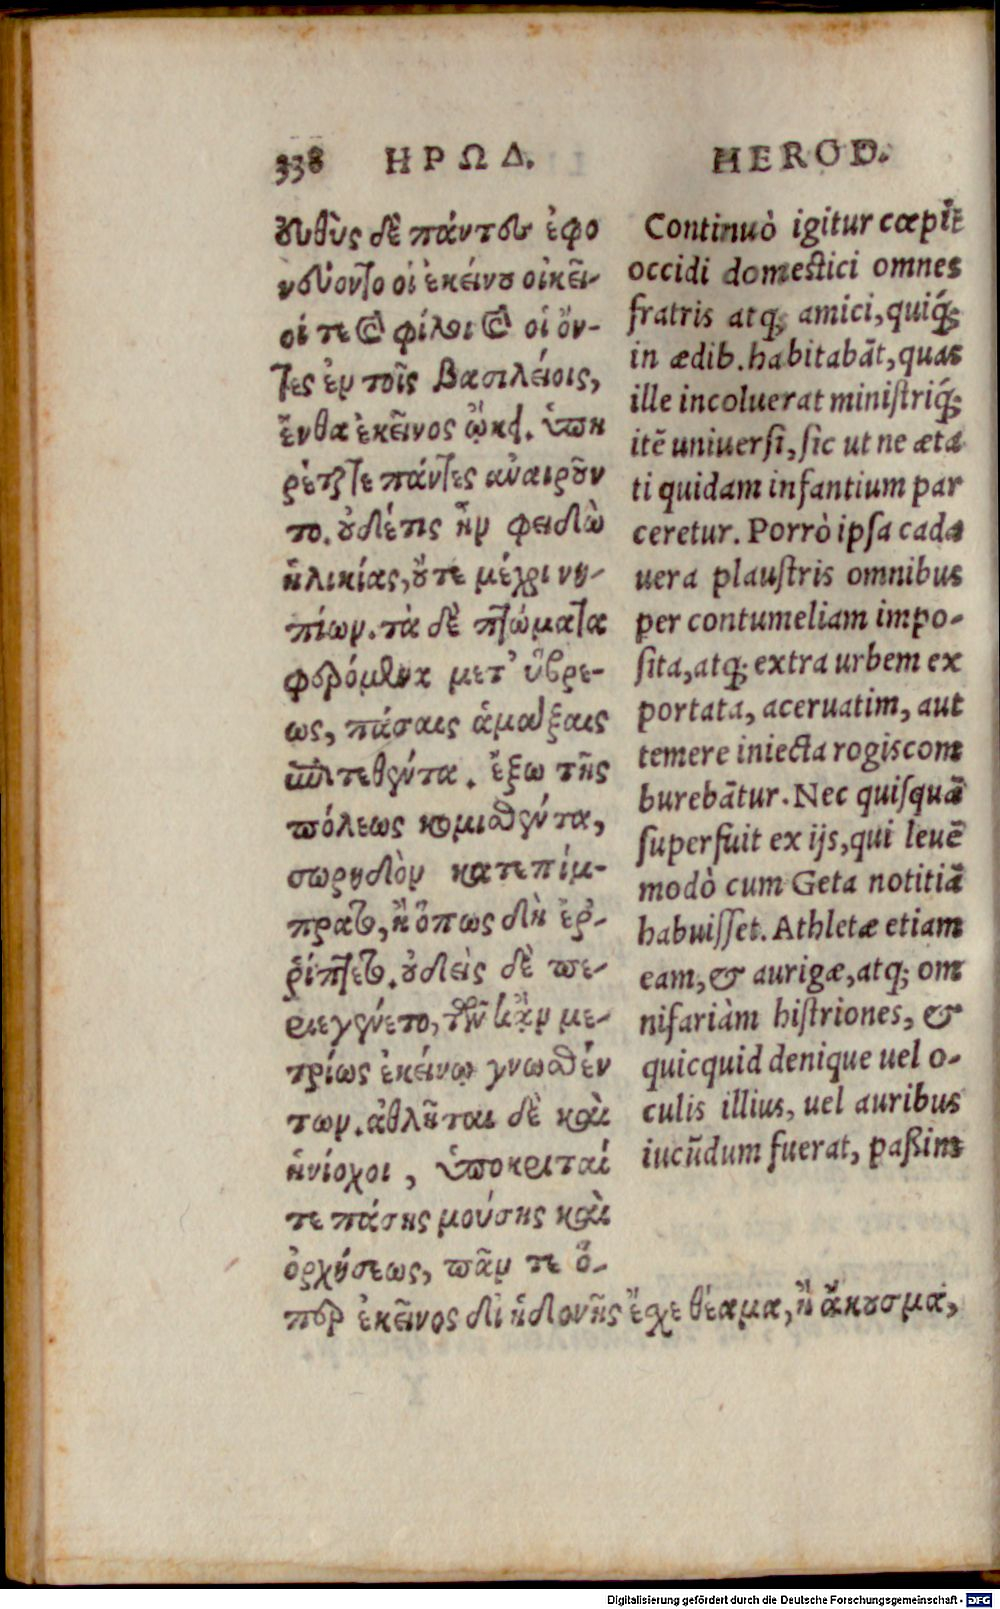 338 ΗΡΩΔ. HEROD.
ευθὺς δὲ πάντες ἐφο
νεύοντο οἱ ἐκείνου οἰκεῖ-
οί τε καὶ φίλοι καὶ οἱ ὄν-
τες ἐν τοῖς βασιλείοις,
ἔνθα ἐκεῖνος ᾤκει. ὑπη
ρέται τε πάντες ἀναιροῦν
το. οὐδέ τις ἦν φειδὼ
ἡλικίας, οὔτε μέχρι νη-
πίων. τὰ δὲ πτώματα
φερόμενα μετ' ὕβρε-
ως, πάσαις ἁμάξαις
ἐπιτεθέντα. ἔξω τῆς
πόλεως κομισθέντα,
σωρηδὸν κατεπίμ-
πρατο, ἢ ὅπως δὴ ἐρ-
ρίπτετο. οὐδεὶς δὲ πε-
ριεγένετο, τῶν κἂν με-
τρίως ἐκείνῳ γνωσθέν
των. ἀθληταὶ δὲ καὶ
ἡνίοχοι, ὑποκριταί
τε πάσης μούσης καὶ
ὀρχήσεως, πᾶν τε ὅ-
περ ἐκεῖνος δι ἡδονῆς ἔχε θέαμα, ἢ ἄκουσμα,
Continuò igitur cœpit
occidi domestici omnes
fratris atq; amici, quiq́;
in ædib. habitabāt, quas
ille incoluerat ministriq́;
itē uniuersi, sic ut ne æta
ti quidam infantium par
ceretur. Porrò ipsa cada
uera plaustris omnibus
per contumeliam impo-
sita, atq; extra urbem ex
portata, aceruatim, aut
temere iniecta rogis com
burebātur. Nec quisquā
superfuit ex ijs, qui leuē
modò cum Geta notitiā
habuisset. Athletæ etiam
eam, & aurigæ, atq; om
nifariàm histriones, &
quicquid denique uel o-
culis illius, uel auribus
iucūdum fuerat, paßim
Digitalisierung gefördert durch die Deutsche Forschungsgemeinschaft - DFG